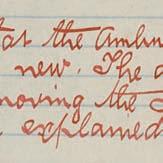 at the
new. The
moving the
explained